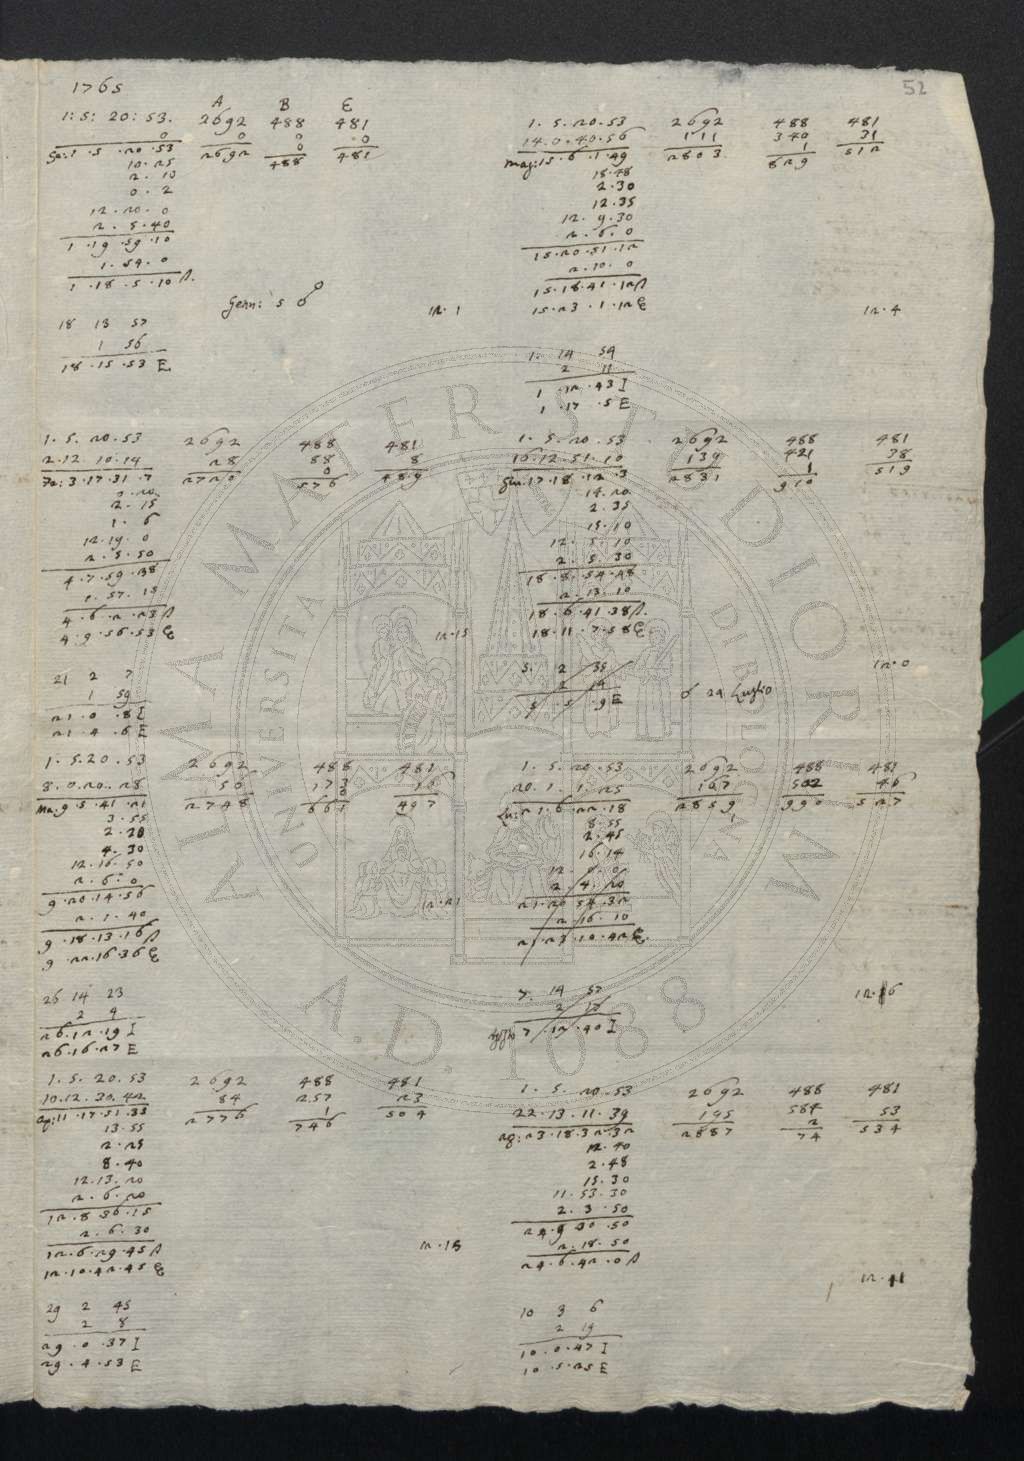 1765
52
A B E
1: 5: 20: 53. 2692 488 481
0 0 0 0
Ge: 1 . 5 . 20 . 53 2692 0 481
10. 25 488
2. 10
0. 2
12. 20. 0
2. 5. 40
1 . 19 . 59 . 10
1. 54. 0
1 . 18 . 5 . 10
Genn: 5
12. 1
18 13 57
1 56
18 . 15 . 53 E
1. 5. 20. 53 2692 488 481
2. 12. 10. 14 28 88 8
Fe: 3. 17. 31. 7 2720 0 489
576
2. 15
1. 6
12. 19. 0
2. 5. 50
4. 7. 59. 38
1. 57. 15
4. 6. 2. 23
4. 9. 56. 53
12. 15
21 2 7
1 59
21. 0. 8 I
21. 4. 6 E
1. 5. 20. 53 2692 488 481
8. 0. 20. 28 56 173 16
Ma. 9. 5. 41. 21 2748 661 497
3. 55
2. 20
4. 30
12. 16. 50
2. 6. 0
9. 20. 14. 56
2. 1. 40
9. 18. 13. 16
9. 22. 16. 36
12. 21
26 14 23
2 4
26. 12. 19 I
26. 16. 27 E
1. 5. 20. 53 2692 488 481
10. 12. 30. 42 84 257 23
Ap: 11. 17. 51. 35 2776 1 504
13. 55 746
2. 25
8. 40
12. 13. 20
2. 6. 20
12. 8. 36. 15
2. 6. 30
12. 6. 29. 45
12. 10. 42. 45
12. 18
29 2 45
2 8
29. 0. 37 I
29. 4. 53 E
1. 5. 20. 53 2692 488 481
14. 0. 40. 56 111 340 31
Mag: 15. 6. 1. 49 2803 1 512
18. 48 829
2. 30
12. 35
12. 9. 30
2. 6. 0
15. 20. 51. 12
2. 10. 0
15. 18. 41. 12
15. 23. 1. 12
12. 4
1. 14 54
2 11
1. 12. 43 I
1. 17. 5 E
1. 5. 20. 53 2692 488 481
16. 12. 51. 10 139 421 38
Giu. 17. 18. 12. 3 2831 1 519
14. 20 910
2. 35
15. 10
12. 5. 10
2. 5. 30
18. 8. 54. 48
2. 13. 10
18. 6. 41. 38
18. 11. 7. 58
12. 0
5. 2 35
2 14
5. 5. 9 E
24 Luglio
1. 5. 20. 53 2692 488 481
20. 1. 1. 25 167 502 46
Lu: 21. 6. 22. 18 2859 990 527
8. 55
2. 45
16. 14
12. 0. 0
2. 4. 20
21. 20. 54. 32
2. 16. 10
21. 23. 10. 42
12. 16
7. 14 57
2 17
7. 12. 40 I
1. 5. 20. 53 2692 488 481
22. 13. 11. 39 195 584 53
Ag: 23. 18. 32. 32 2887 2 534
12. 40 74
2. 48
15. 30
11. 53. 30
2. 3. 50
24. 9. 30. 50
2. 18. 50
24. 6. 42. 0
12. 11
10 3 6
2 19
10. 0. 47 I
10. 5. 25 E
ALMA MATER STUDIORUM
A.D. 1088